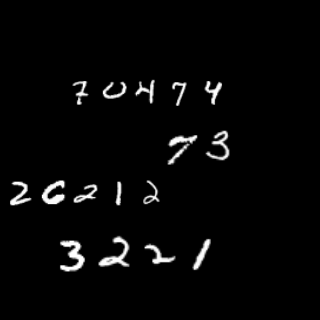 70474
73
26212
3221